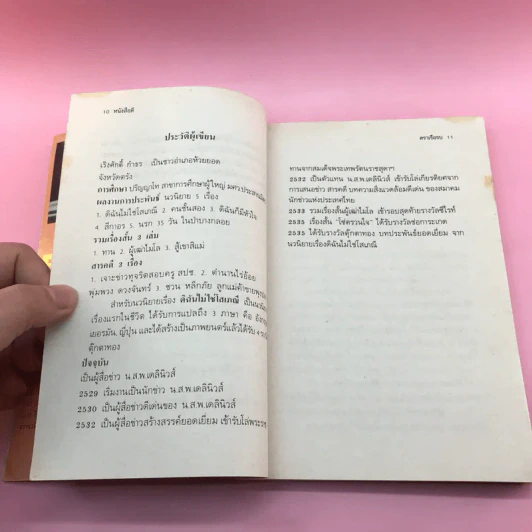 10 หนังสือดี
ประวัติผู้เขียน
เริงศักดิ์ กำธร เป็นชาวอำเภอห้วยยอด
จังหวัดตรัง
การศึกษา ปริญญาโท สาขาการศึกษาผู้ใหญ่ มศว.ประสานมิตร
ผลงานการประพันธ์ นวนิยาย 5 เรื่อง
1. ดิฉันไม่ใช่โสเภณี 2. คนชั้นสอง 3. ดิฉันก็มีหัวใจ
4. สีกาอร 5. นรก 35 วัน ในป่าบางกลอย
รวมเรื่องสั้น 3 เล่ม
1. ทาน 2. ผู้เฒ่าโมโล 3. สู้เขาสิแม่
สารคดี 3 เรื่อง
1. เจาะข่าวทุจริตสอบครู สปช. 2. ตำนานไร่อ้อย
พุ่มพวง ดวงจันทร์ 3. ชวน หลีกภัย ลูกแม่ค้าขายพุงปลา
สำหรับนวนิยายเรื่อง ดิฉันไม่ใช่โสเภณี เป็นนวนิยาย
เรื่องแรกในชีวิต ได้รับการแปลถึง 3 ภาษา คือ อังกฤษ
เยอรมัน, ญี่ปุ่น และได้สร้างเป็นภาพยนตร์แล้วได้รับ 4 รางวัล
ตุ๊กตาทอง
ปัจจุบัน
เป็นผู้สื่อข่าว น.ส.พ.เดลินิวส์
2529 เริ่มงานเป็นนักข่าว น.ส.พ.เดลินิวส์
2530 เป็นผู้สื่อข่าวดีเด่นของ น.ส.พ.เดลินิวส์
2532 เป็นผู้สื่อข่าวสร้างสรรค์ยอดเยี่ยม เข้ารับโล่พระราช
ตราเรือนบ 11
ทานจากสมเด็จพระเทพรัตนราชสุดาฯ
2532 เป็นตัวแทน น.ส.พ.เดลินิวส์ เข้ารับโล่เกียรติยศจาก
การเสนอข่าว สารคดี บทความสิ่งแวดล้อมดีเด่น ของสมาคม
นักข่าวแห่งประเทศไทย
2533 รวมเรื่องสั้นผู้เฒ่าโมโล เข้ารอบสุดท้ายรางวัลซีไรท์
2535 เรื่องสั้น "โซ่ตรวนใจ" ได้รับรางวัลช่อการะเกด
2535 ได้รับรางวัลตุ๊กตาทอง บทประพันธ์ยอดเยี่ยม จาก
นวนิยายเรื่องดิฉันไม่ใช่โสเภณี